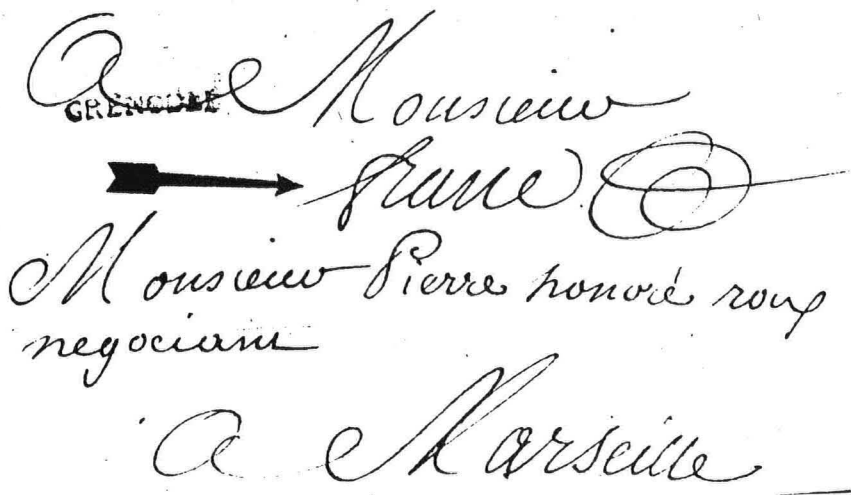 A Monsieur
GRENOBLE
franc
Monsieur Pierre honoré roux
negociant
a Marseille